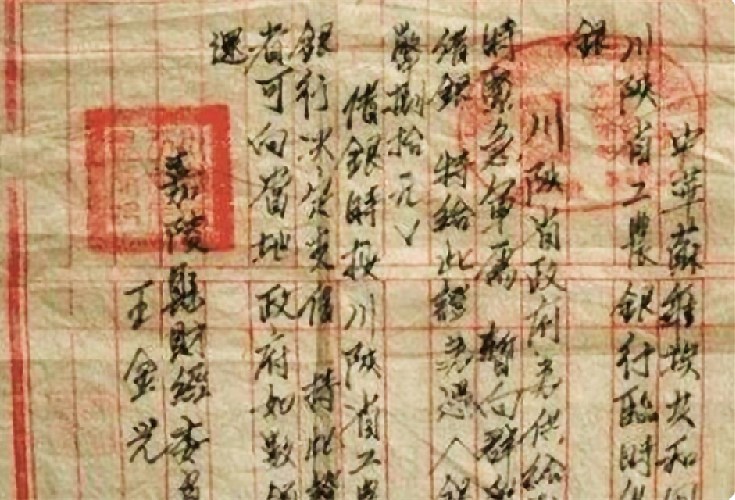 中華蘇維埃共和國
川陝省工農銀行臨時借
銀
川陝省政府為供給
時緊急軍需 暫向群眾
借銀 特給此證為憑
捌拾元
借銀時按川陝省工農
銀行決 持此證
者可向當地政府如數領
還
嘉陵縣財經委員
王金兴